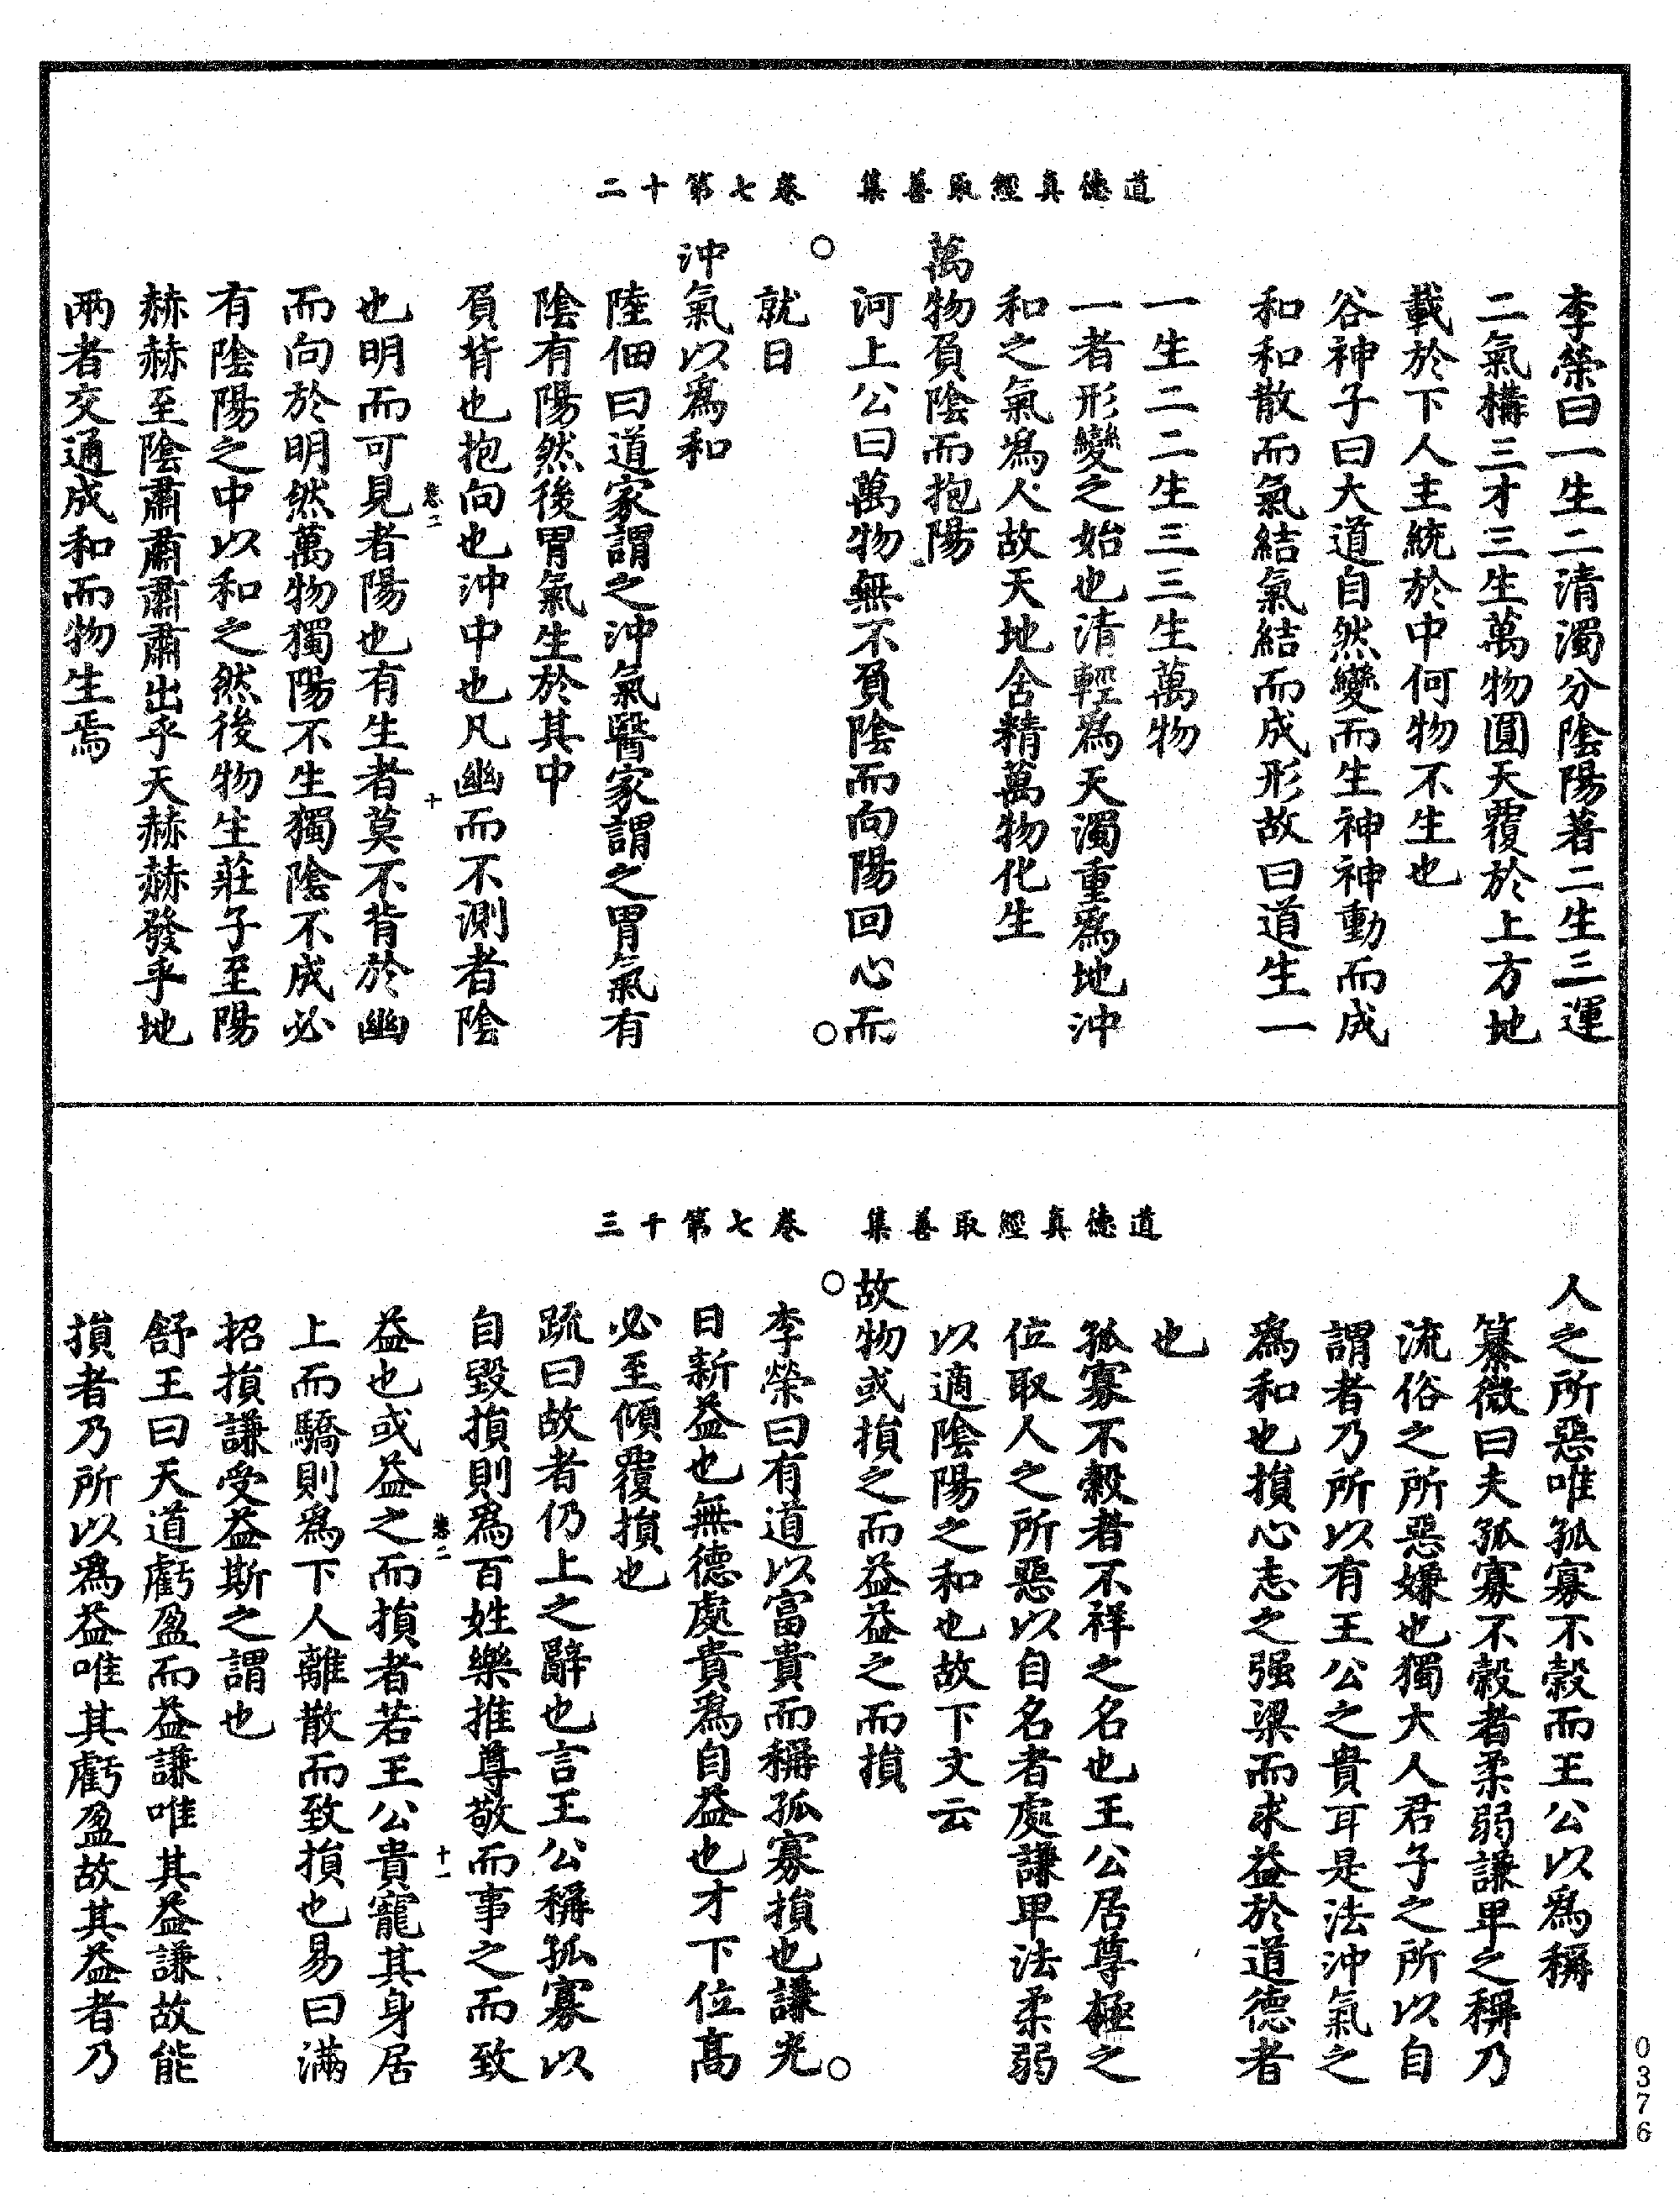 道德真經取善集　卷七第十二
李榮曰一生二清濁分陰陽著二生三運
二氣構三才三生萬物圓天覆於上方地
載於下人主統於中何物不生也
谷神子曰大道自然變而生神神動而成
和和散而氣結氣結而成形故曰道生一
一生二二生三三生萬物
一者形變之始也清輕爲天濁重爲地沖
和之氣爲人故天地含精萬物化生
萬物負陰而抱陽
河上公曰萬物無不負陰而向陽回心而
就日
沖氣以爲和
陸佃曰道家謂之沖氣醫家謂之胃氣有
陰有陽然後胃氣生於其中
負背也抱向也沖中也凡幽而不測者陰
卷二　十
也明而可見者陽也有生者莫不背於幽
而向於明然萬物獨陽不生獨陰不成必
有陰陽之中以和之然後物生莊子至陽
赫赫至陰肅肅肅肅出乎天赫赫發乎地
兩者交通成和而物生焉
道德真經取善集　卷七第十三
人之所惡唯孤寡不穀而王公以爲稱
纂微曰夫孤寡不穀者柔弱謙卑之稱乃
流俗之所惡嫌也獨大人君子之所以自
謂者乃所以有王公之貴耳是法沖氣之
爲和也損心志之强梁而求益於道德者
也
孤寡不穀者不祥之名也王公居尊極之
位取人之所惡以自名者處謙卑法柔弱
以適陰陽之和也故下文云
故物或損之而益益之而損
李榮曰有道以富貴而稱孤寡損也謙光
日新益也無德處貴爲自益也才下位高
必至傾覆損也
疏曰故者仍上之辭也言王公稱孤寡以
自毀損則爲百姓樂推尊敬而事之而致
卷二　十一
益也或益之而損者若王公貴寵其身居
上而驕則爲下人離散而致損也易曰滿
招損謙受益斯之謂也
舒王曰天道虧盈而益謙唯其益謙故能
損者乃所以爲益唯其虧盈故其益者乃
0376